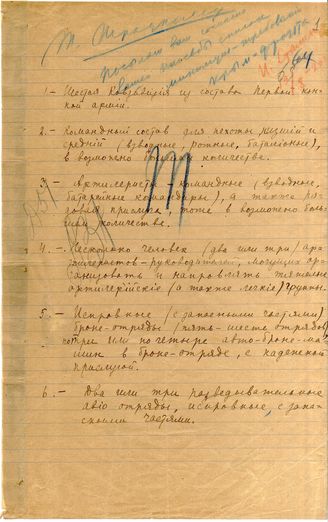 т. Троцкому
Посылаю вам список
минимум-требований
Крым-фронта
И. Сталин
1.- Шестая Кавдивизия из состава Первой кон-
ной армии.
2.- Командный состав для пехоты низший и
средний (взводные, ротные, батальонные),
в возможно большем количестве.
3.- Артилеристы - командные (взводные,
батарейные командиры), а также ря-
довая прислуга, тоже в возможно боль-
шом количестве.
4.- Несколько человек (два или три) ар-
тилеристов-руководителей, могущих ор-
ганизовать и направлять тяжелые
артилерийские (а также легкие) группы.
5.- Исправные (с запасными частями)
броне-отряды (пять-шесть отрядов),
три или по четыре авто-броне-ма-
шин в броне-отряде, с надежной
прислугой.
6.- Два или три разведывательные
авио отряды, исправные, с запа-
сными частями.